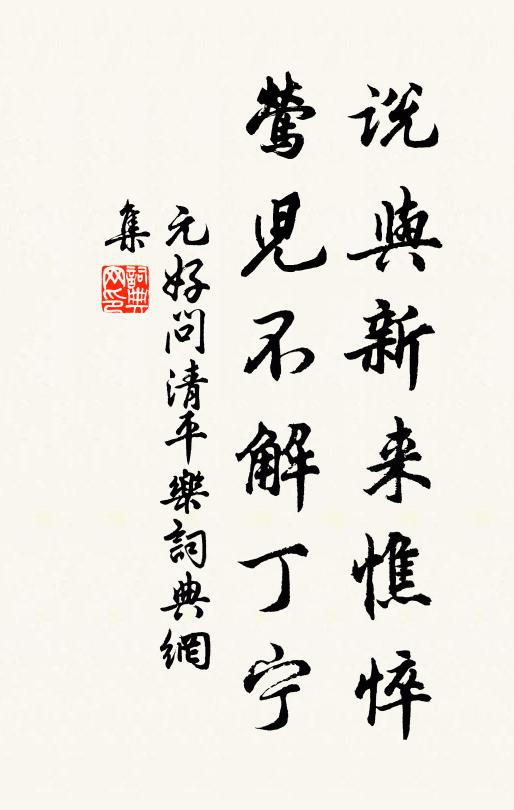 説與新来憔悴
鶯児不解丁宁
元好问清平樂詞典網
集
詞典
网印